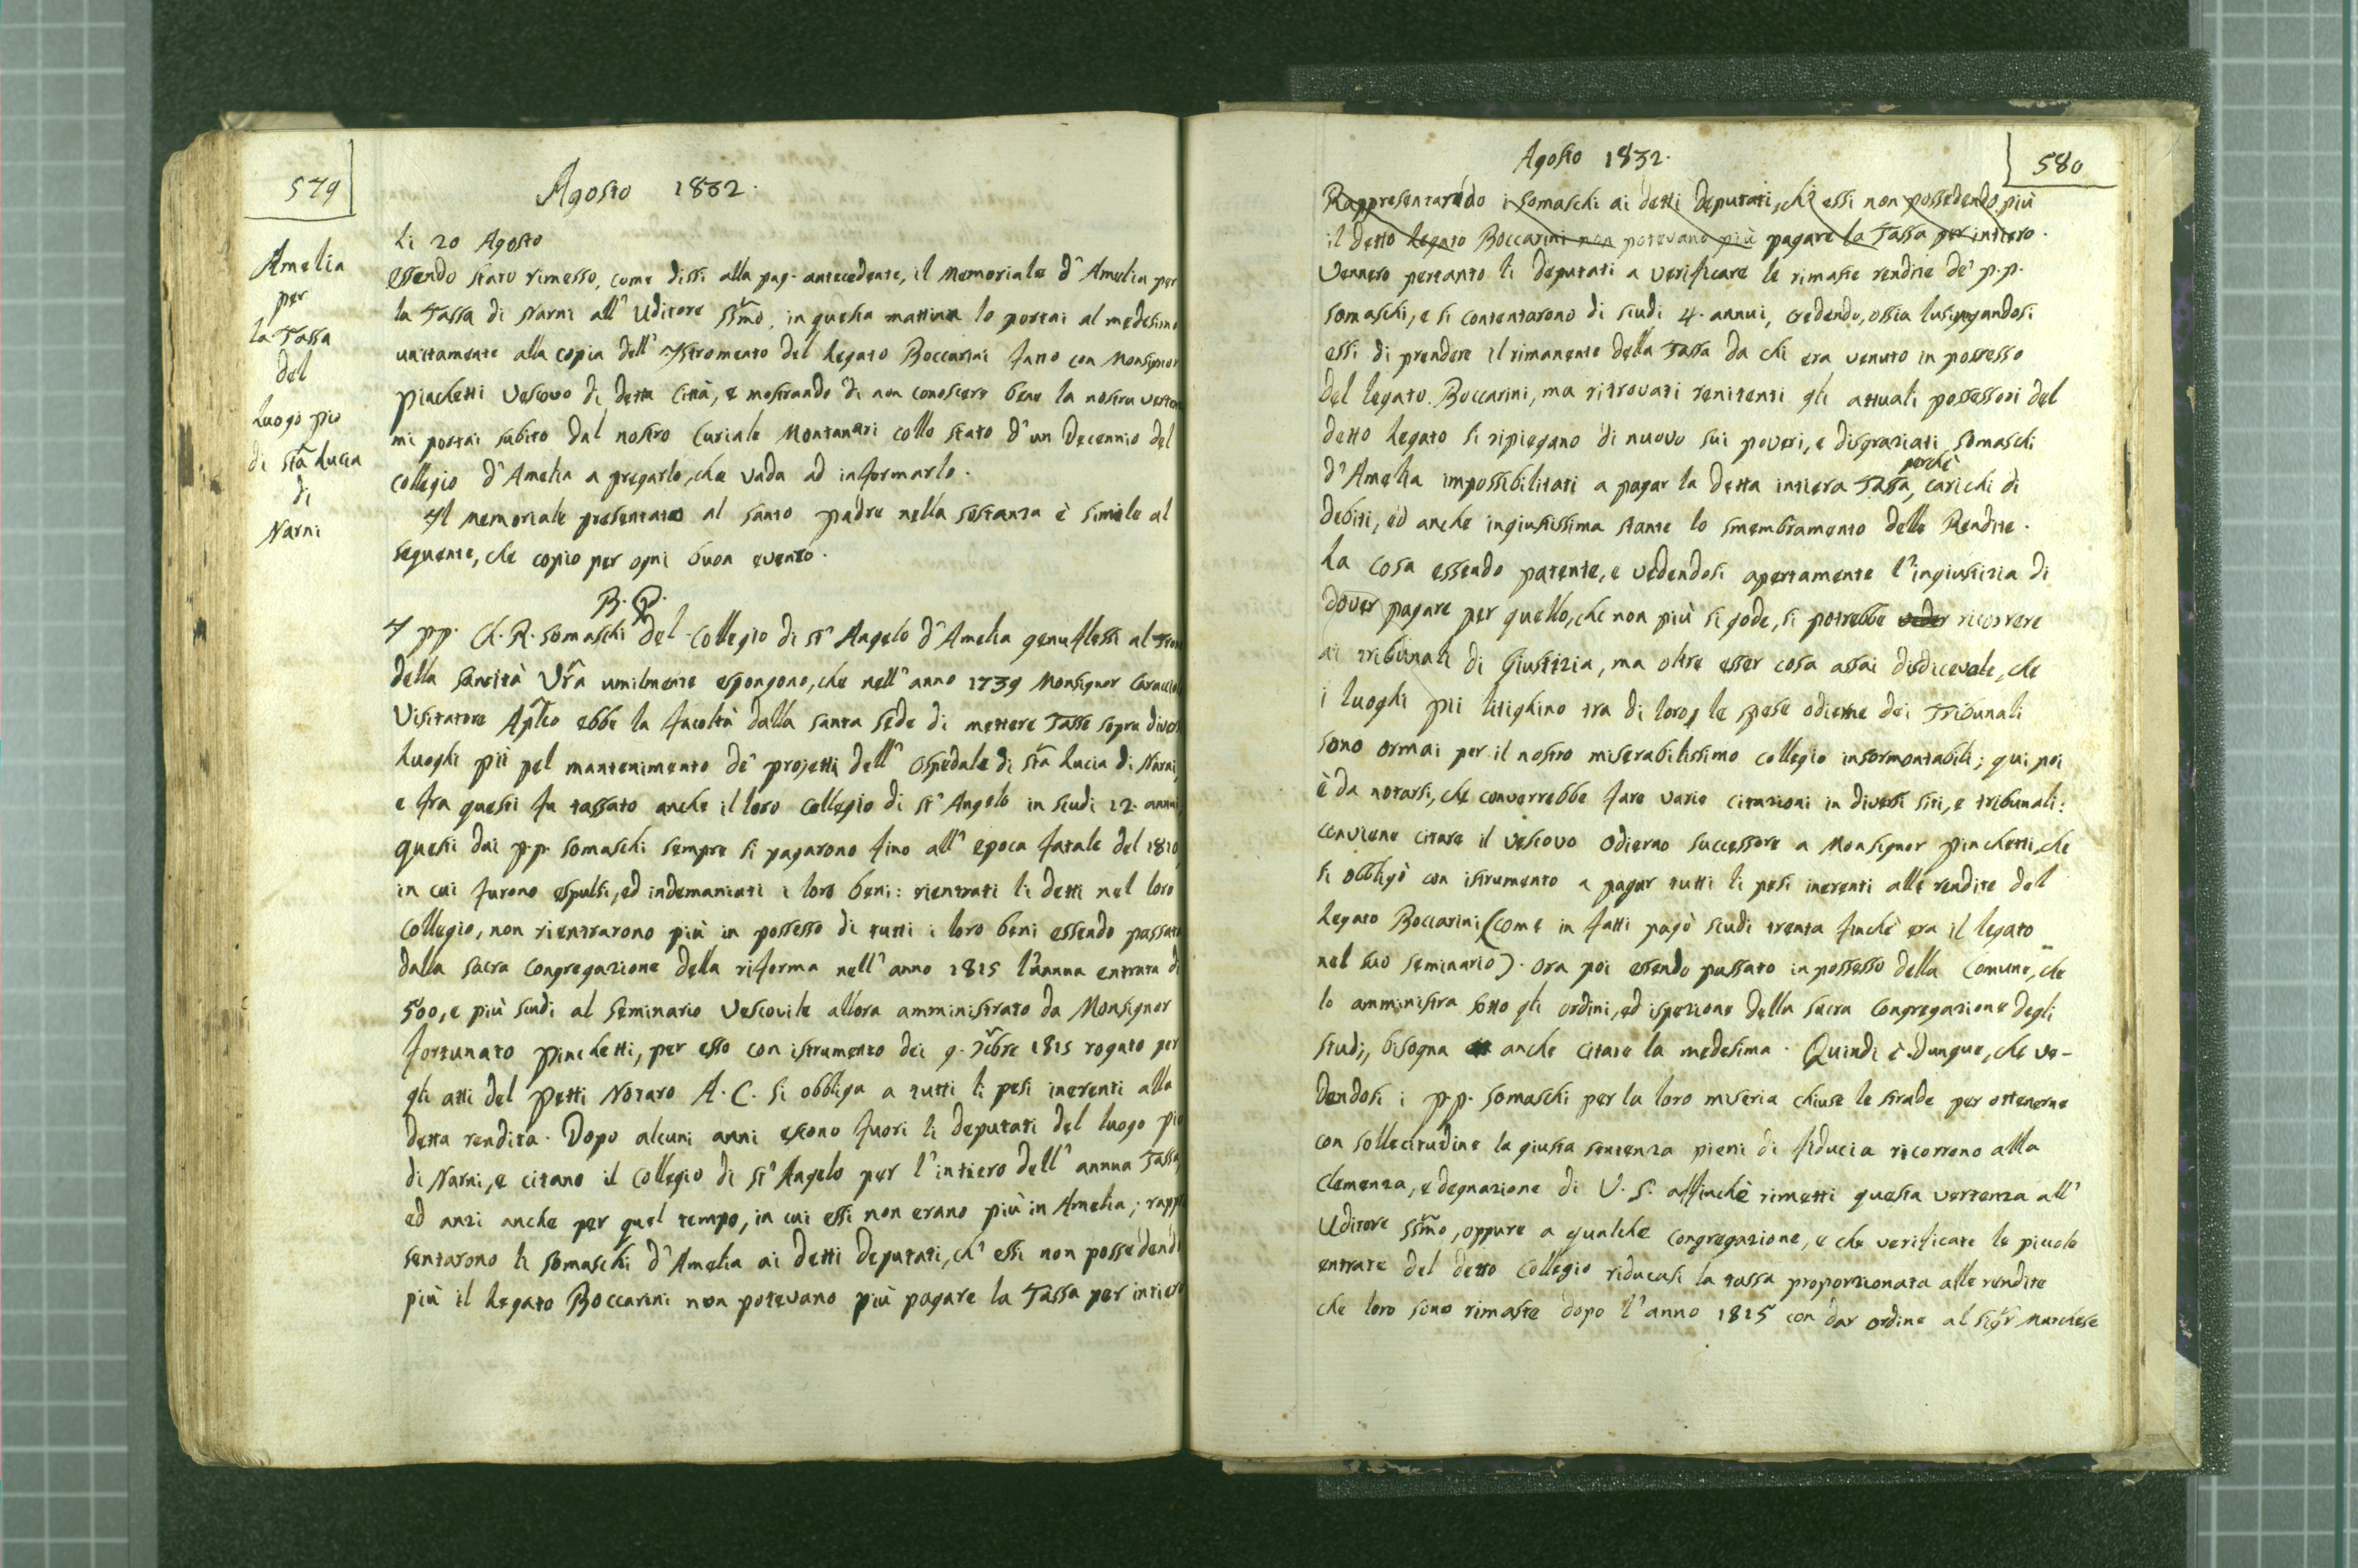 579
Agosto 1832.
Amelia
per
la Tassa
del
Luogo pio
di Sta Lucia
di
Narni
Li 20 Agosto
Essendo stato rimesso, come dissi alla pag. antecedente, il Memoriale d'Amelia per
la Tassa di Narni all'Uditore SSmo, in questa mattina lo portai al medesimo
unitamente alla copia dell'Istromento del Legato Boccarini fatto con Monsignor
Pinchetti Vescovo di detta Città, e mostrando di non conoscere bene la nostra
mi portai subito dal nostro Curiale Montanari collo stato d'un Decennio del
collegio d'Amelia a pregarlo, che vada ad informarlo.
Il Memoriale presentato al Santo Padre nella sostanza è simile al
seguente, che copio per ogni buon evento.
B. P.
I PP. Ch. R. Somaschi del Collegio di St' Angelo d'Amelia genuflessi al
della Santità Vra umilmente espongono, che nell'anno 1739 Monsignor
Visitatore Aplico ebbe la facoltà dalla Santa Sede di mettere Tasse sopra
Luoghi pii pel mantenimento de' projetti dell'Ospedale di Sta Lucia di Narni,
e fra questi fu tassato anche il loro Collegio di St' Angelo in scudi 12. annui
questi dai PP. Somaschi sempre si pagarono fino all'epoca fatale del 1810,
in cui furono espulsi, ed indemaniati i loro beni: rientrati li detti nel loro
Collegio, non rientrarono più in possesso di tutti i loro beni essendo passata
dalla Sacra Congregazione della riforma nell'anno 1815 l'annua entrata di
500, e più scudi al Seminario Vescovile allora amministrato da Monsignor
Fortunato Pinchetti, per esso con istrumento dei 9. 7ibre 1815 rogato per
gli atti del Petti Notaro A. C. si obbliga a tutti li pesi inerenti alla
detta rendita. Dopo alcuni anni escono fuori li deputati del luogo pio
di Narni, e citano il Collegio di St' Angelo per l'intiero dell'annua Tassa,
ed anzi anche per quel tempo, in cui essi non erano più in Amelia; rappre
sentarono li Somaschi d'Amelia ai detti Deputati, ch'essi non possedendo
più il Legato Boccarini non potevano più pagare la Tassa per intiero
580
Agosto 1832.
Rappresentarondo i Somaschi ai detti Deputati, ch'essi non possedendo più
il detto Legato Boccarini non potevano più pagare la Tassa per intiero.
Vennero pertanto li Deputati a verificare le rimaste rendite de' PP.
Somaschi, e si contentarono di scudi 4. annui, credendo, ossia lusingandosi
essi di prendere il rimanente della Tassa da chi era venuto in possesso
del legato Boccarini, ma ritrovati renitenti gli attuali possessori del
detto Legato si ripiegano di nuovo sui poveri, e disgraziati Somaschi
perchè
d'Amelia impossibilitati a pagar la detta intiera Tassa, carichi di
debiti, ed anche ingiustissima stante lo smembramento delle Rendite.
La cosa essendo patente, e vedendosi apertamente l'ingiustizia di
dover pagare per quello, che non più si gode, si potrebbe veder ricorrere
ai tribunali di Giustizia, ma oltre esser cosa assai disdicevole, che
i luoghi pii litighino tra di loro, le spese odierne dei Tribunali
sono ormai per il nostro miserabilissimo collegio insormontabili; qui poi
è da notarsi, che converrebbe fare varie citazioni in diversi siti, e tribunali:
conviene citare il Vescovo odierno successore a Monsignor Pinchetti, che
si obbligò con istrumento a pagar tutti li pesi inerenti alle rendite del
Legato Boccarini (come in fatti pagò scudi trenta finchè era il legato
nel suo seminario). Ora poi essendo passato in possesso della Comune, che
lo amministra sotto gli ordini, ed ispezione della Sacra Congregazione degli
Studi, bisogna anche citare la medesima. Quindi è dunque, che ve-
dendosi i PP. Somaschi per la loro miseria chiuse le strade per ottenerne
con sollecitudine la giusta sentenza pieni di fiducia ricorrono alla
Clemenza, e degnazione di V. S. affinchè rimetti questa vertenza all'
Uditore SSmo, oppure a qualche Congregazione, e che verificate le piccole
entrate del detto Collegio riducasi la tassa proporzionata alle rendite
che loro sono rimaste dopo l'anno 1815 con dar ordine al Sigr Marchese